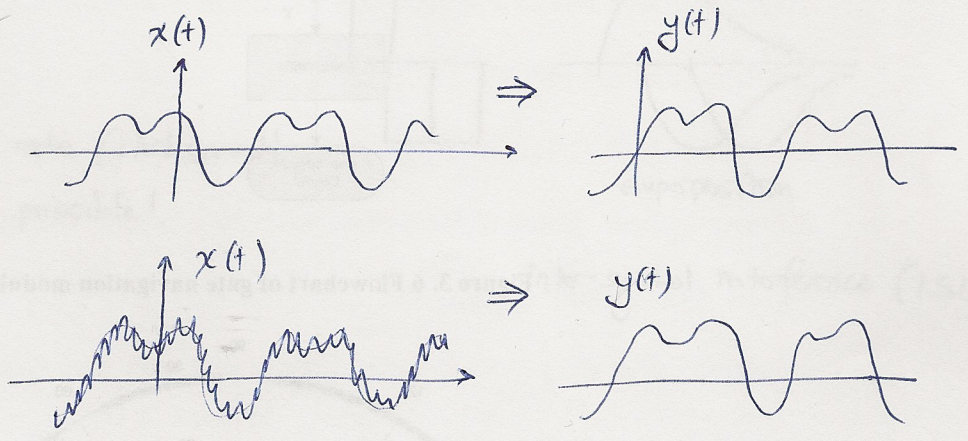 x(t)
⇒
y(t)
x(t)
⇒
y(t)